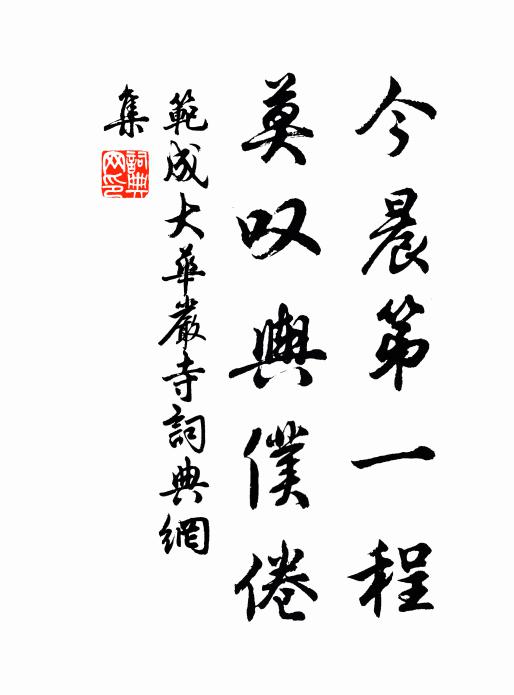 今晨第一程
莫叹輿僕倦
範成大華嚴寺詞典網
集
詞典
网印